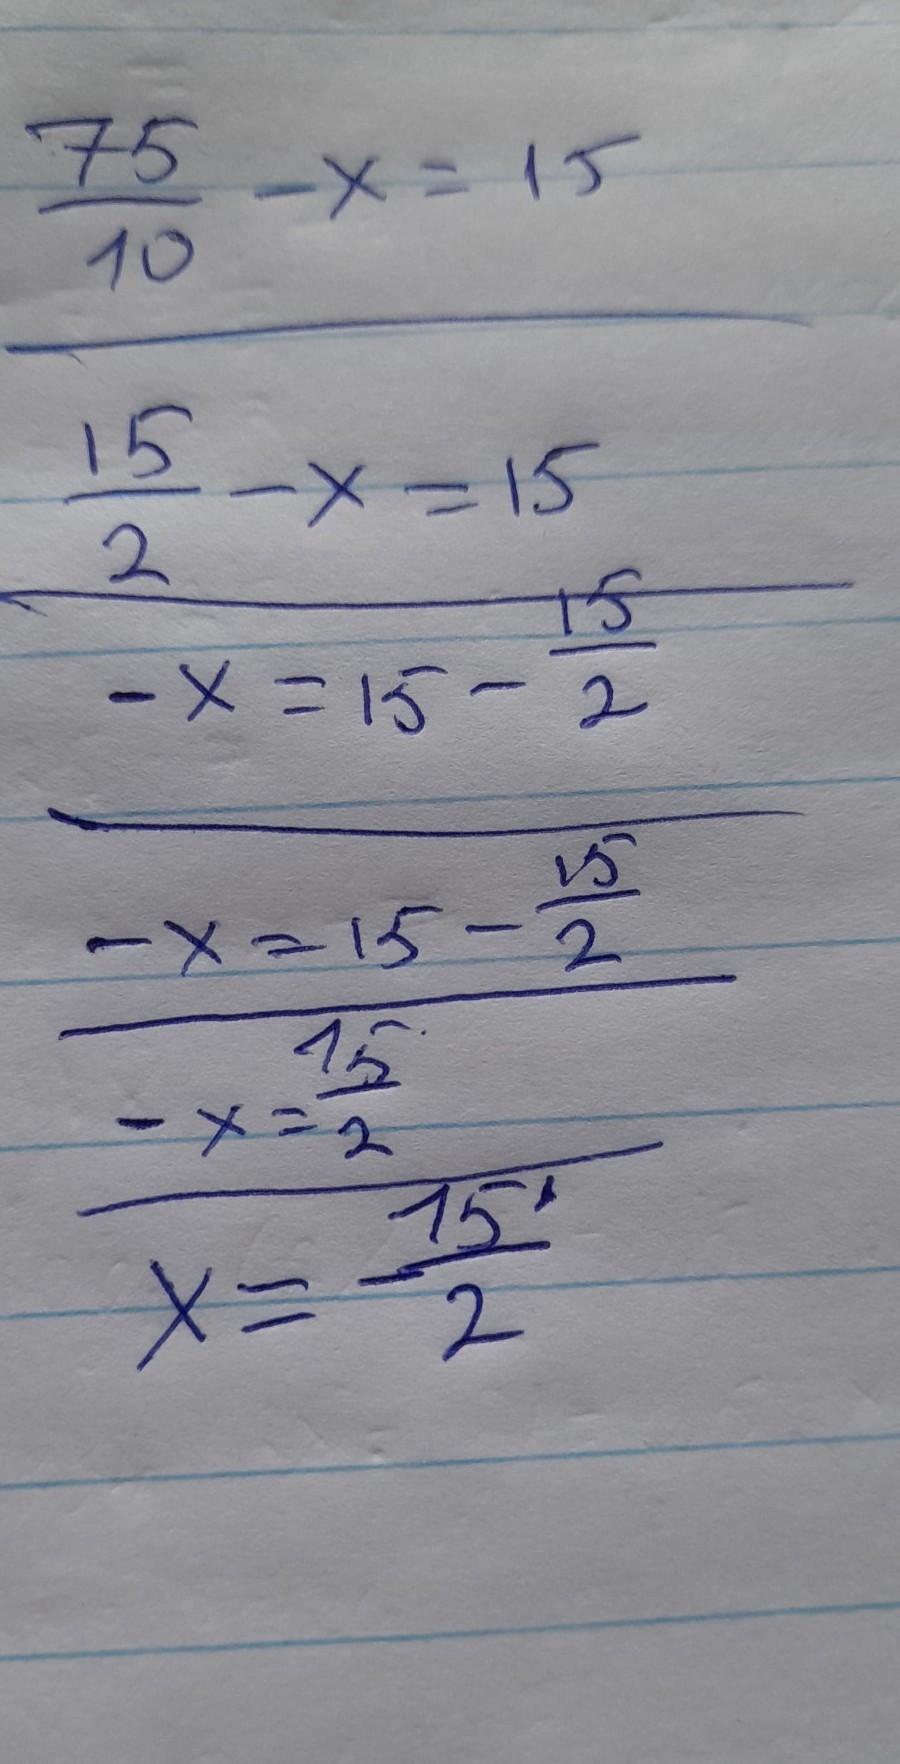 75/10 - x = 15
15/2 - x = 15
- x = 15 - 15/2
- x = 15 - 15/2
- x = 15/2
x = - 15/2